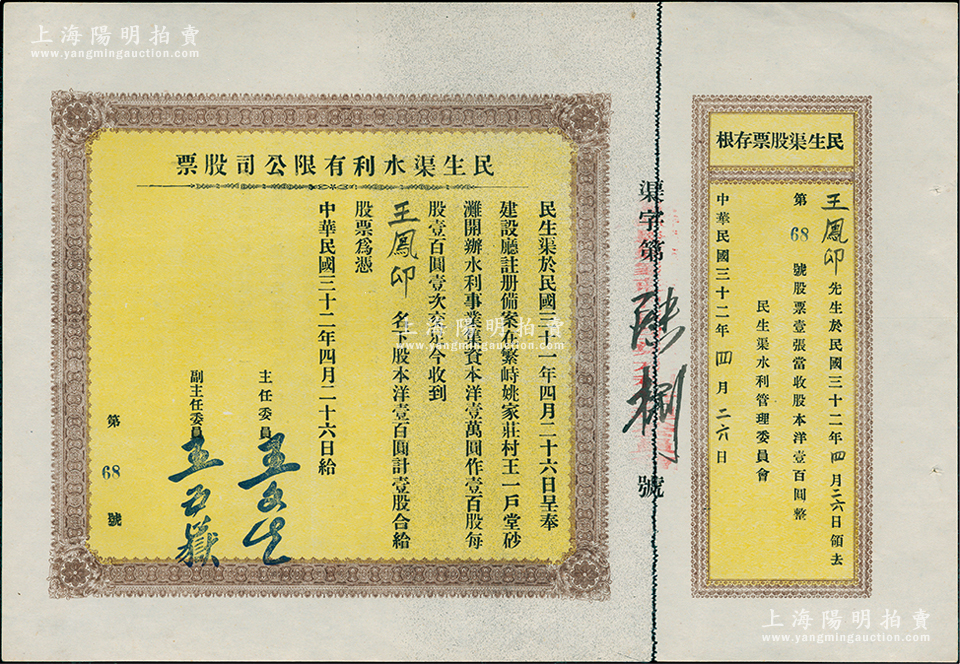 上海陽明拍賣
www.yangmingauction.com
上海陽明拍賣
www.yangmingauction.com
民生渠股票存根
王鳳印先生於民國三十二年四月二六日領去
第68號股票壹張當收股本洋壹百圓整
民生渠水利管理委員會
中華民國三十二年四月二六日
渠字第陸捌號
民生渠水利有限公司股票
民生渠於民國三十一年四月二十六日呈奉
建設廳註册備案在繁峙姚家莊村王一戶堂砂
灘開辦水利事業集資本洋壹萬圓作壹百股每
股壹百圓壹次交足今收到
王鳳印名下股本洋壹百圓計壹股合給
股票爲憑
中華民國三十二年四月二十六日給
主任委員
副主任委員
第68號
上海陽明拍賣
www.yangmingauction.com
上海陽明拍賣
www.yangmingauction.com